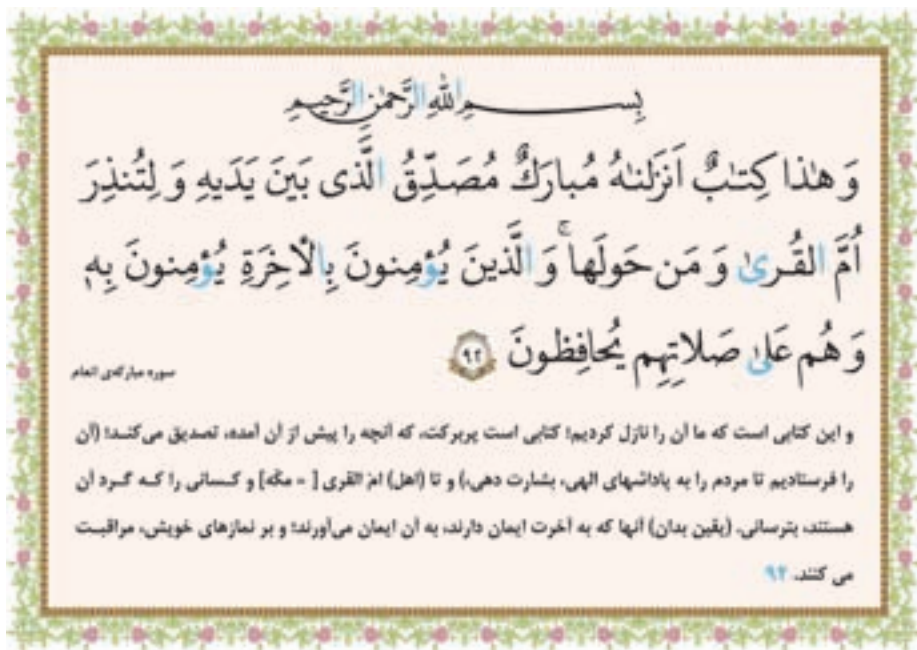 بِسمِ اللهِ الرَّحمٰنِ الرَّحيمِ
وَ هٰذا كِتٰبٌ اَنزَلنٰهُ مُبارَكٌ مُصَدِّقُ الَّذى بَينَ يَدَيهِ وَ لِتُنذِرَ
اُمَّ القُرىٰ وَ مَن حَولَها ۚ وَ الَّذينَ يُؤمِنونَ بِالْاٰخِرَةِ يُؤمِنونَ بِهٖ
وَ هُم عَلىٰ صَلاتِهِم يُحافِظونَ ﴿٩٢﴾
سوره مبارکه‌ی انعام
و این کتابی است که ما آن را نازل کردیم؛ کتابی است پربرکت، که آنچه را پیش از آن آمده، تصدیق می‌کند؛ (آن
را فرستادیم تا مردم را به پاداشهای الهی، بشارت دهی،) و تا (اهل) امّ القری [ = مکّه] و کسانی را که گرد آن
هستند، بترسانی. (یقین بدان) آنها که به آخرت ایمان دارند، به آن ایمان می‌آورند؛ و بر نمازهای خویش، مراقبت
می کنند. ۹۲